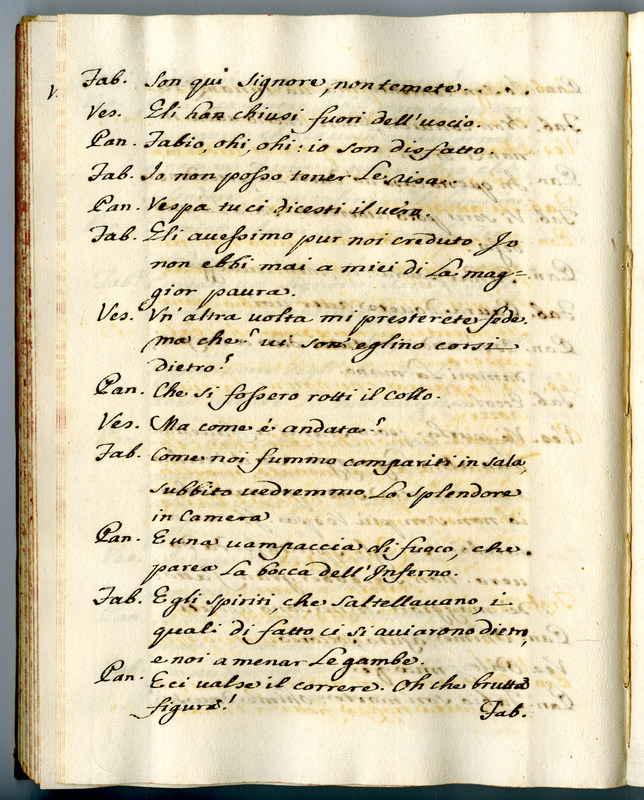 V.
Fab. Son qui Signore, non temete....
Ves. Gli han chiusi fuori dell'uscio.
Pan. Fabio, ohi, ohi: io son disfatto.
Fab. Io non posso tener Le risa..
Pan. Vespa tu ci dicesti il vero.
Fab. Gli avessimo pur noi creduto. Io
non ebbi mai a miei dì La mag=
gior paura.
Ves. Un'altra volta mi presterete fede.
ma che? vi son' eglino corsi
dietro?
Pan. Che si fossero rotti il collo.
Ves. Ma come é andata?
Fab. Come noi fummo compariti in sala,
subbito vedremmo Lo splendore
in Camera
Pan. E una vampaccia di fuoco, che
parea La bocca dell'Inferno.
Fab. E gli spiriti, che saltellavano, i
quali di fatto ci si aviarono dietro,
e noi a menar Le gambe.
Pan. E ci valse il correre. Oh che brutta
figura!
Fab.